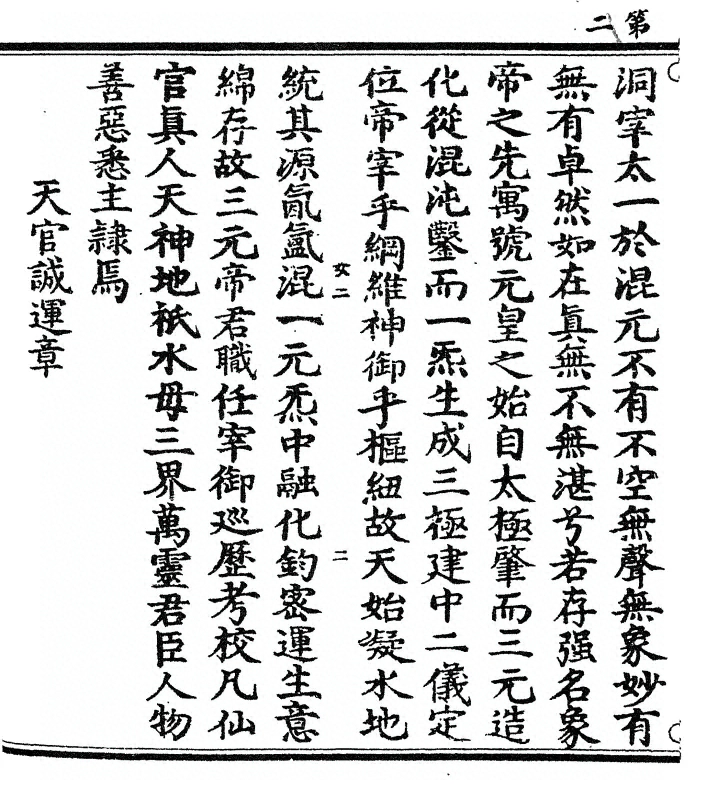 第二
洞宰太一於混元不有不空無聲無象妙有
無有卓然如在真無不無湛兮若存强名象
帝之先寓號元皇之始自太極肇而三元造
化從混沌鑿而一炁生成三極建中二儀定
位帝宰乎綱維神御乎樞紐故天始凝水地
女二 二
統其源氤氳混一元炁中融化鈞密運生意
綿存故三元帝君職任宰御巡歷考校凡仙
官眞人天神地祇水母三界萬靈君臣人物
善惡悉主隷焉
天官誠運章